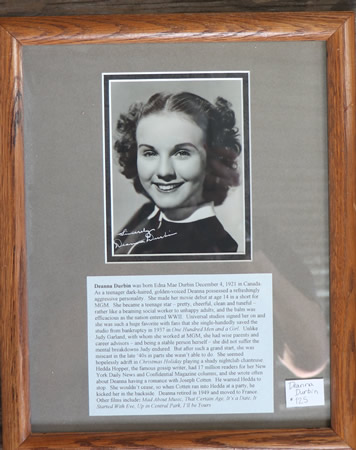 Sincerely
Deanna Durbin
Deanna Durbin was born Edna Mae Durbin December 4, 1921 in Canada.
As a teenager dark-haired, golden-voiced Deanna possessed a refreshingly
aggressive personality. She made her movie debut at age 14 in a short for
MGM. She became a teenage star – pretty, cheerful, clean and tasteful –
rather like a beaming social worker to unhappy adults, and the balm was
efficacious as the nation entered WWII. Universal studios signed her on and
she was such a huge favorite with fans that she single-handedly saved the
studio from bankruptcy in 1937 in One Hundred Men and a Girl. Unlike
Judy Garland, with whom she worked at MGM, she had wise parents and
career advisors – and being a stable person herself – she did not suffer the
mental breakdowns Judy endured. But after such a grand start, she was
miscast in the late '40s in parts she wasn't able to do. She seemed
hopelessly adrift in Christmas Holiday playing a shady nightclub chanteuse
Hedda Hopper, the famous gossip writer, had 17 million readers for her New
York Daily News and Confidential Magazine columns, and she wrote often
about Deanna having a romance with Joseph Cotten. He warned Hedda to
stop. She wouldn't cease, so when Cotten ran into Hedda at a party, he
kicked her in the backside. Deanna retired in 1949 and moved to France.
Other films include: Mad About Music, That Certain Age, It's a Date, It
Started With Eve, Up in Central Park, I'll be Yours
Deanna
Durbin
$125